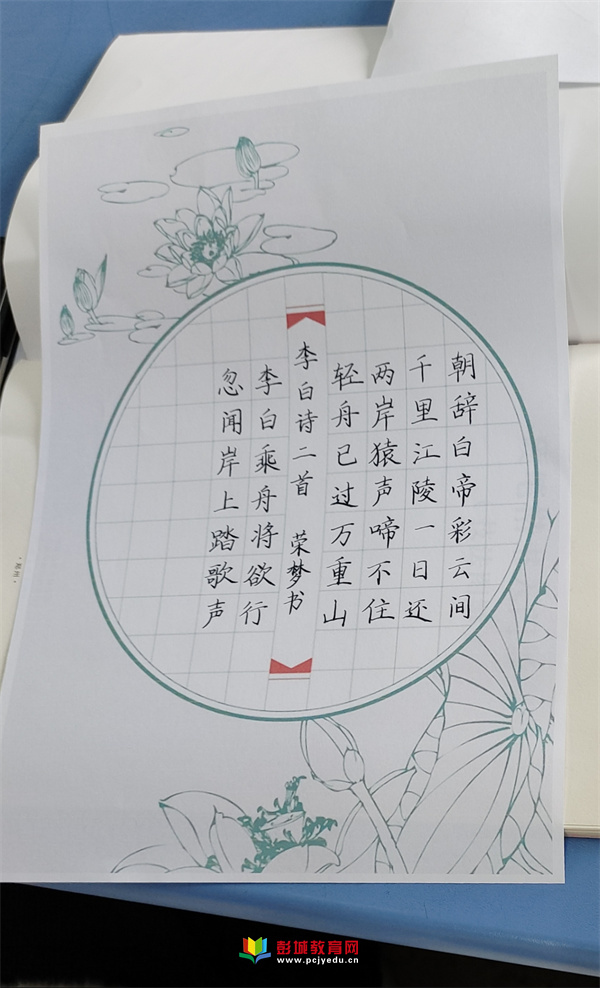 朝辞白帝彩云间
千里江陵一日还
两岸猿声啼不住
轻舟已过万重山
李白诗二首 荣梦书
李白乘舟将欲行
忽闻岸上踏歌声
彭城教育网
www.pcjyedu.cn